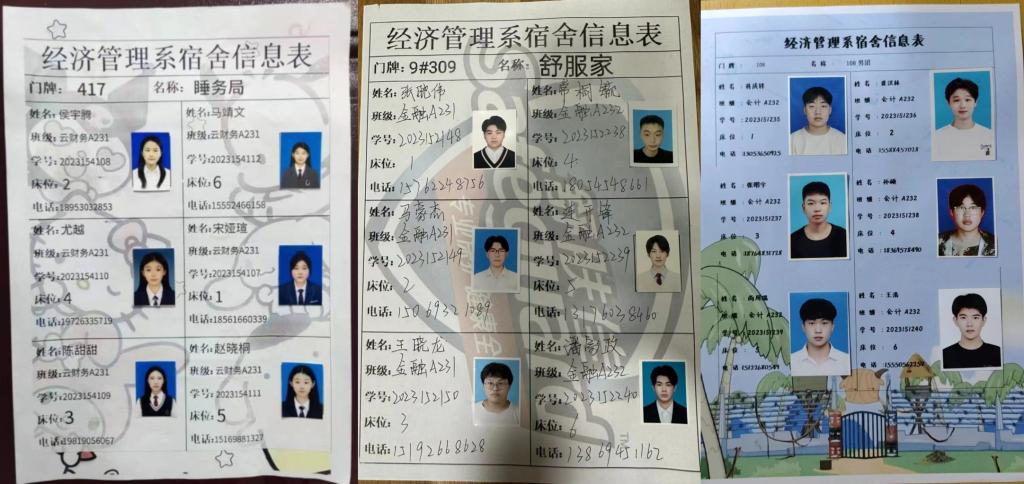 经济管理系宿舍信息表
门牌： 417 名称： 睡务局
姓名：侯宇腾
班级：云财务A231
学号：2023154108
床位：2
电话：18953032853
姓名：马靖文
班级：云财务A231
学号：2023154112
床位：6
电话：15552466158
姓名：尤越
班级：云财务A231
学号：2023154110
床位：4
电话：19726335719
姓名：宋娅瑄
班级：云财务A231
学号：2023154107
床位：1
电话：18561660339
姓名：陈甜甜
班级：云财务A231
学号：2023154109
床位：3
电话：19819056067
姓名：赵晓桐
班级：云财务A231
学号：2023154111
床位：5
电话：15169881327
经济管理系宿舍信息表
门牌：9#309 名称： 舒服家
姓名：
班级：金融A231
学号：2023152148
床位：1
电话：15762248756
姓名：
班级：金融A232
学号：2023152238
床位：4
电话：18054548661
姓名：
班级：金融A231
学号：2023152149
床位：2
电话：
姓名：
班级：金融A232
学号：2023152239
床位：5
电话：
姓名：王晓龙
班级：金融A231
学号：2023152150
床位：3
电话：15192668628
姓名：
班级：金融A232
学号：2023152240
床位：6
电话：
经济管理系宿舍信息表
门牌： 108 名称： 108男团
姓名：
班级：会计A232
学号：2023151235
床位：1
电话：
姓名：
班级：会计A232
学号：2023151236
床位：2
电话：
姓名：
班级：会计A232
学号：2023151237
床位：3
电话：
姓名：
班级：会计A232
学号：2023151238
床位：4
电话：18369578490
姓名：
班级：会计A232
学号：2023151239
电话：
姓名：王浩
班级：会计A232
学号：2023151240
床位：6
电话：